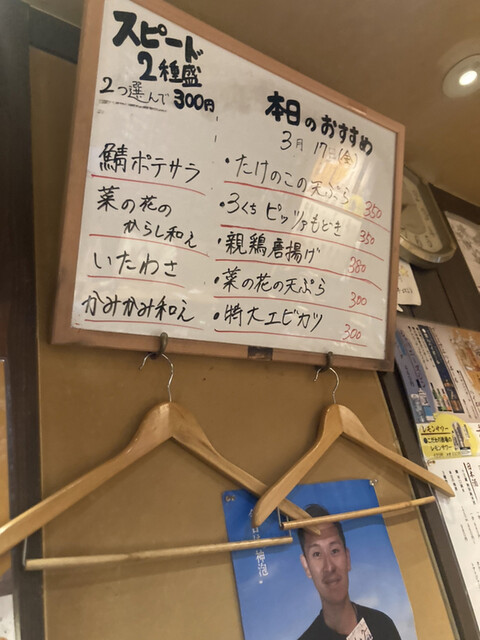 スピード
2種盛
2つ選んで 300円
鯖ポテサラ
菜の花の
からし和え
いたわさ
かみかみ和え
本日のおすすめ
3月 17日(金)
・たけのこの天ぷら 350
・3くちピッツァもどき 350
・親鶏唐揚げ 380
・菜の花の天ぷら 300
・特大エビカツ 300
レモンサワー